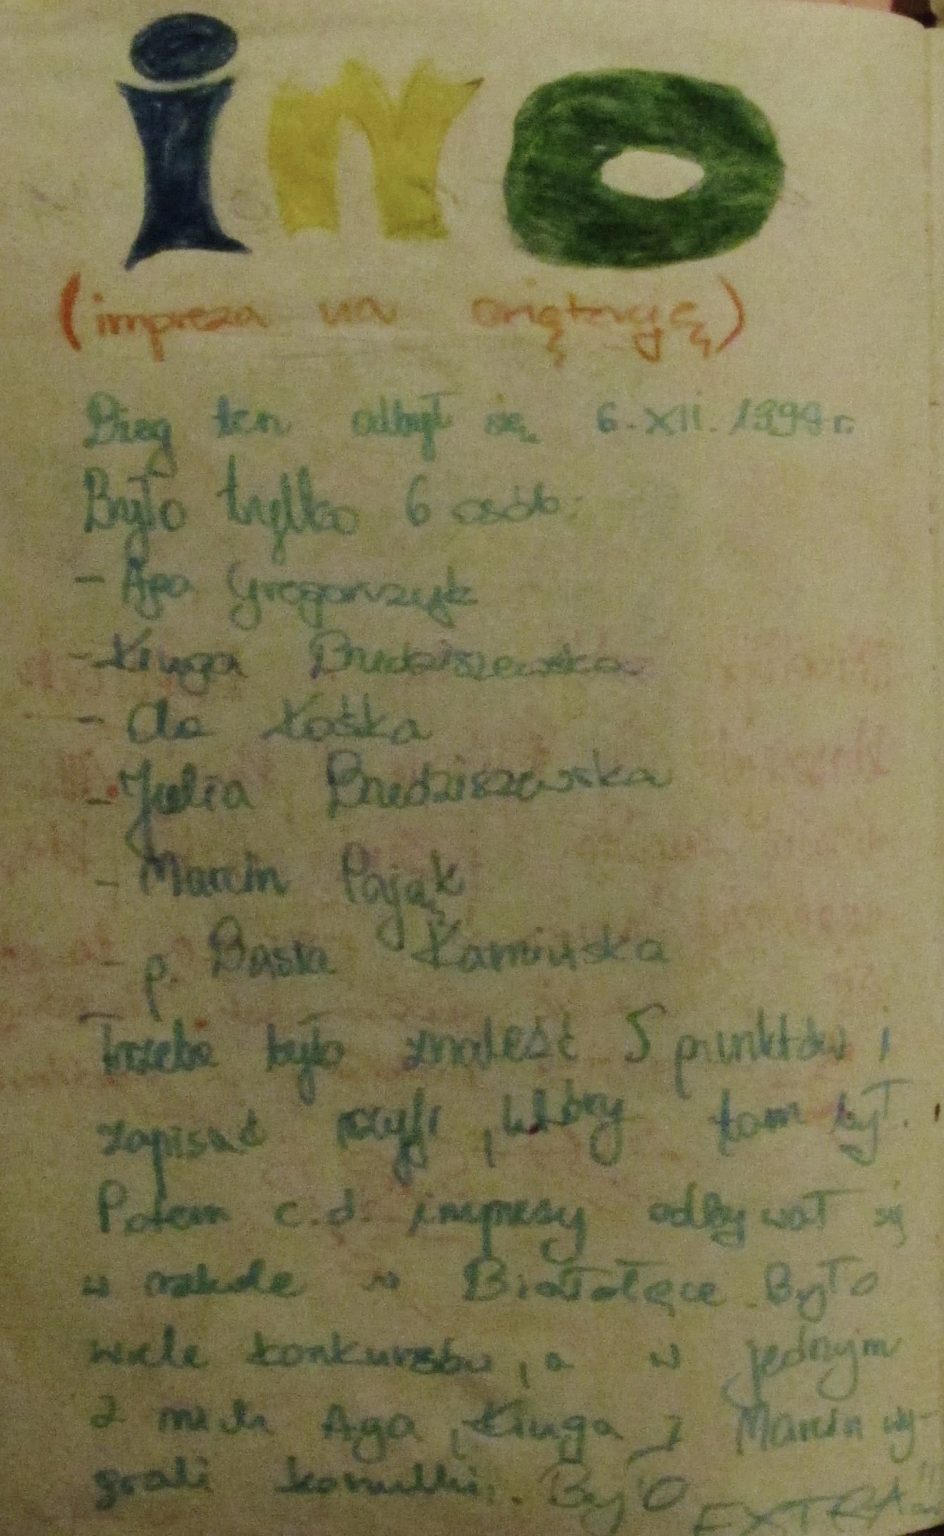 iNO
(impreza na orię
Bieg ten odbył się 6.XII.1998 r.
Było tylko 6 osób:
- Aga Gregorczyk
- Kinga Brudziszewska
- Ola Kośka
- Julia Brudziszewska
- Marcin Pająk
- p. Basia Kamińska
Trzeba było znaleść 5 punktów i
zapisać szyfr, który tam był.
Potem c.d. imprezy odbywał się
w szkole w Białołęce. Było
wiele konkursów, a w jednym
z nich Aga, Kinga i Marcin wy-
grali koszulki. Było EXTRA!!!